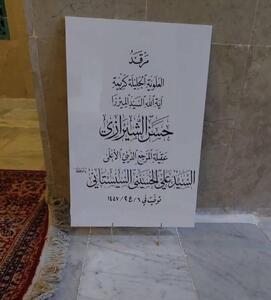 مرقد
العلوية الجليلة كريمة
آية الله السيد الميرزا
حسن الشيرازي
عقيلة المرجع الديني الأعلى
السيد علي الحسيني السيستاني
توفيت في ٦ / ع٢ / ١٤٤٧